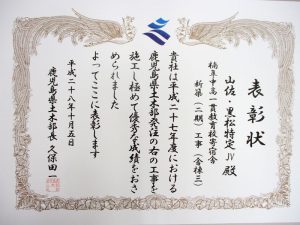 表彰状
山佐・黒松特定JV 殿
楠隼中高一貫教育校寄宿舎
新築(二期)工事(舎棟三)
貴社は平成二十七年度における
鹿児島県土木部発注の右の工事を
施工し極めて優秀な成績をおさ
められました
よってここに表彰します
平成二十八年十月五日
鹿児島県土木部長 久保田一